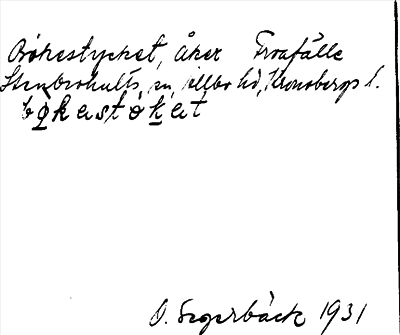 Brökestycket, åker Froafälle
Stenbrohults sn, Allbo hd, Kronobergs l.
brøkastøkat
O. Segerbäck 1931